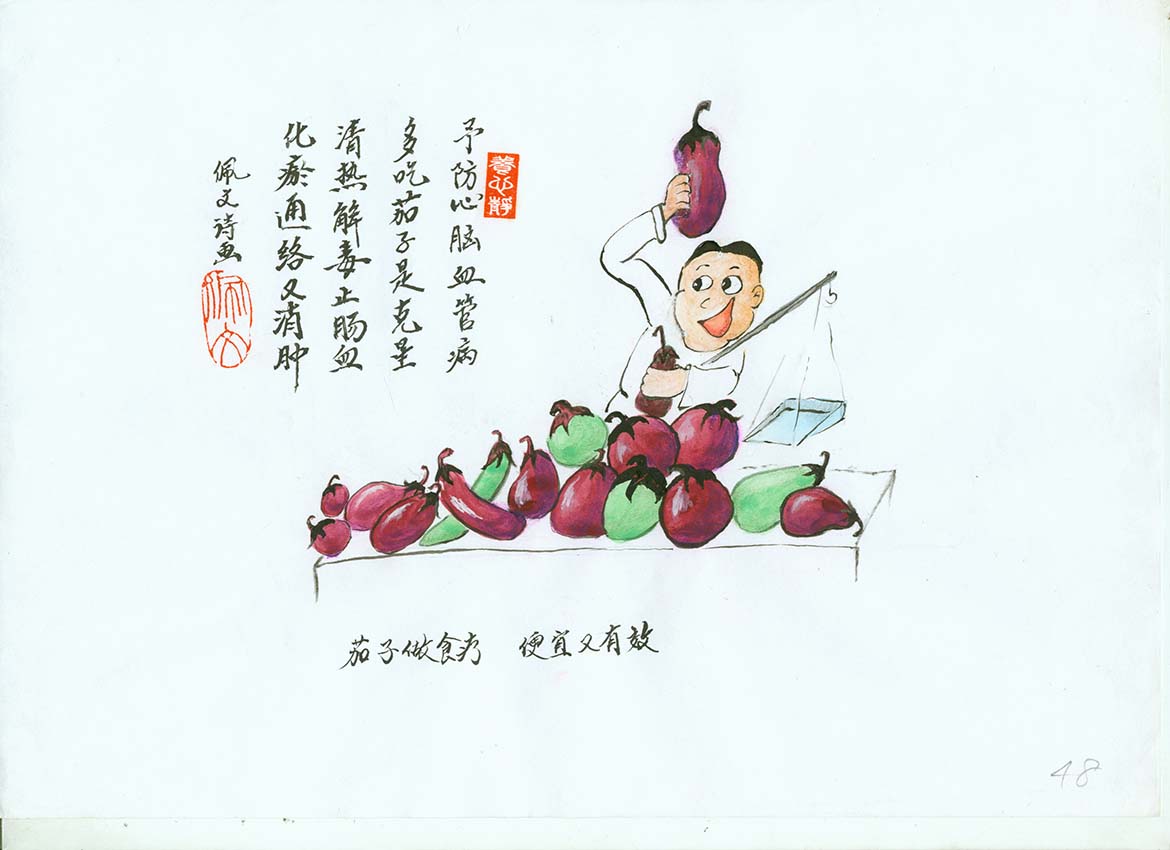 養心靜
予防心脑血管病
多吃茄子是克星
清热解毒止肠血
化瘀通络又消肿
佩文诗画
佩文
茄子做食疗 便宜又有效
48